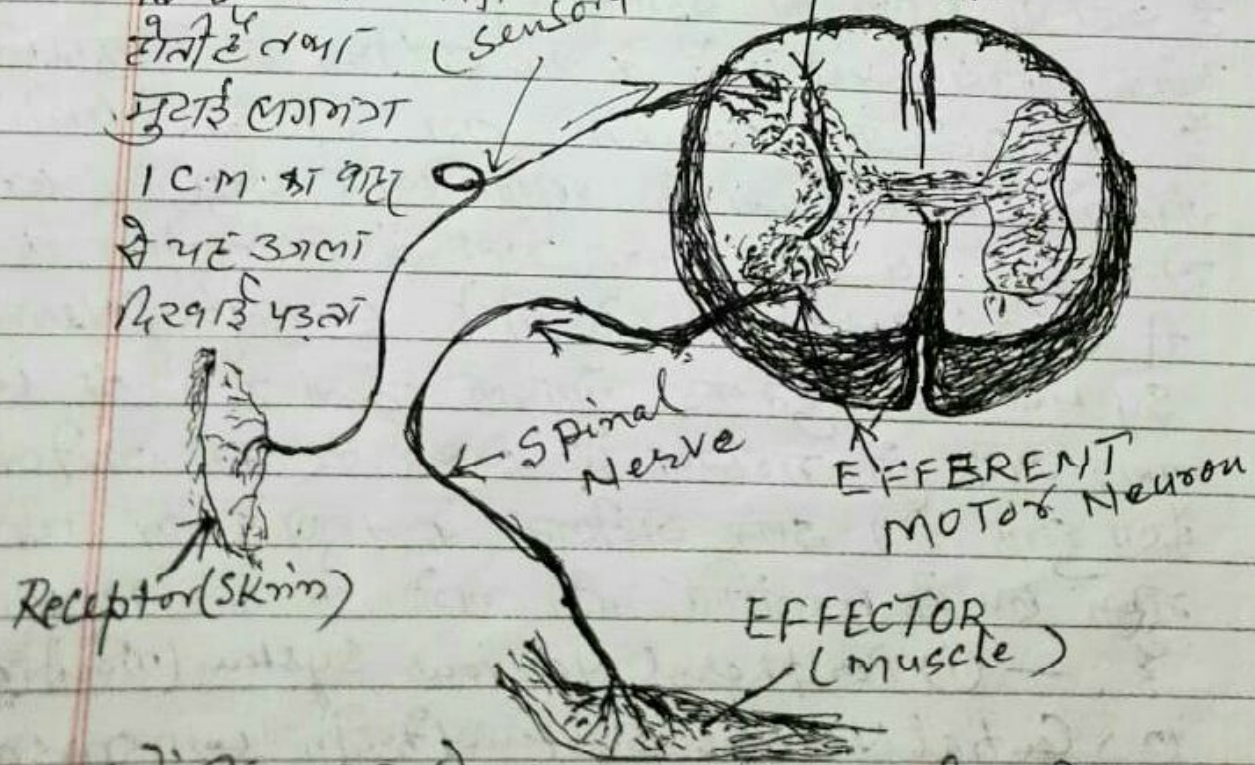 होती है तथा
(Sensory
मुटाई लगभग
1 C.M. का बाहर
से यह उजला
दिखाई पड़ता
Spinal
Nerve
EFFERENT
MOTOR Neuron
Receptor (Skin)
EFFECTOR
(muscle)